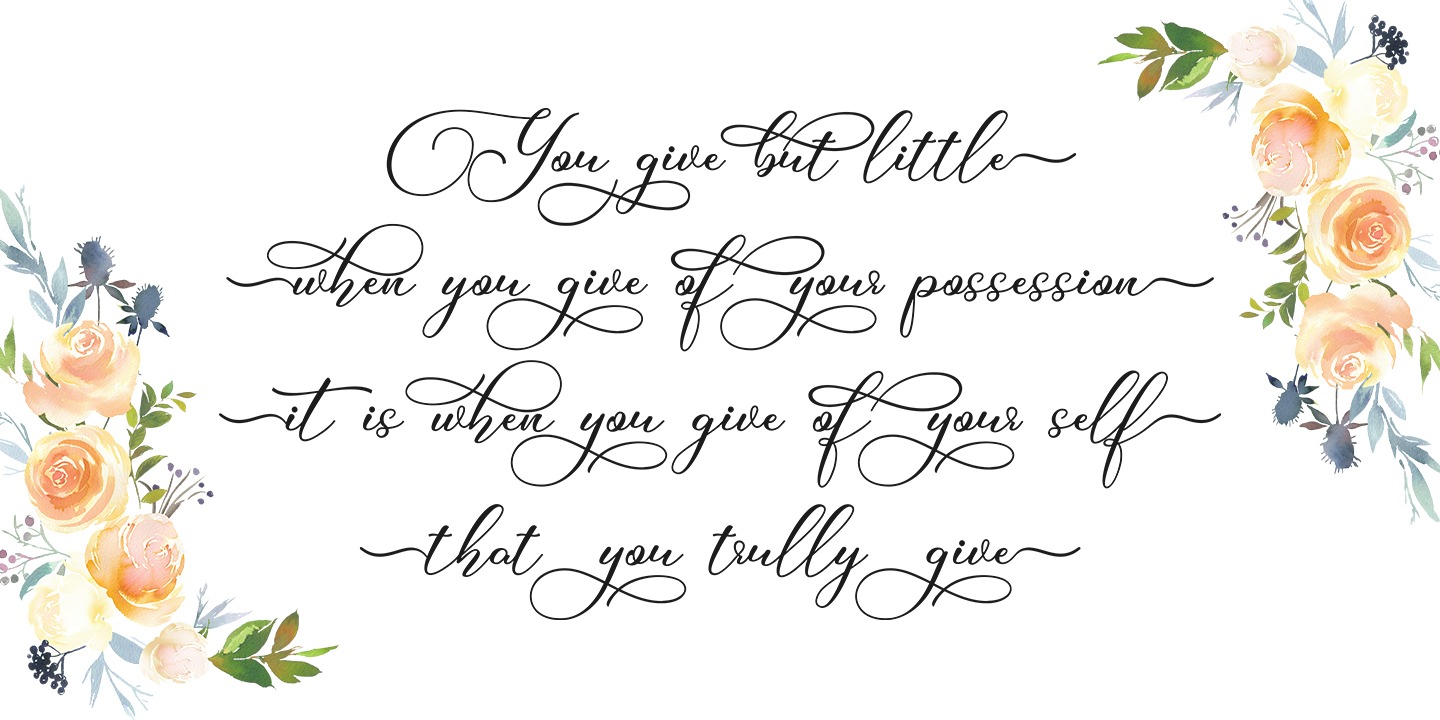 You give but little
when you give of your possession
it is when you give of your self
that you trully give